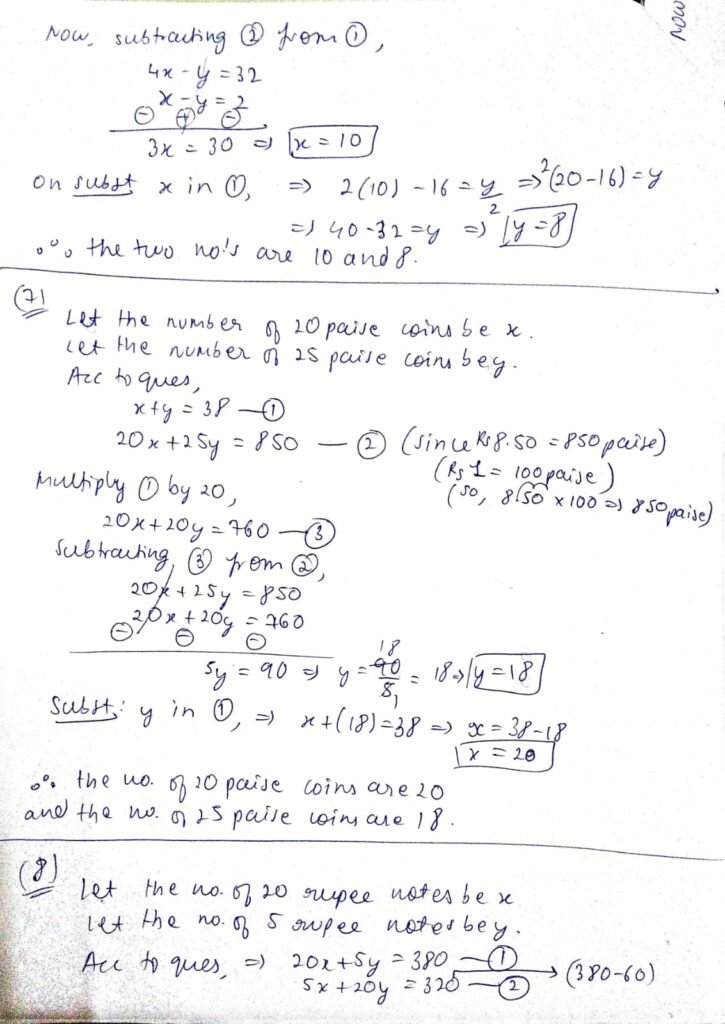 Now, subtracting ② from ①,
4x - y = 32
x - y = 2
⊖ ⊕ ⊖
3x = 30 => x = 10
On subst x in ①, => 2(10) - 16 = y/2 => 2(20-16) = y
=> 40-32 = y => y = 8
∴ the two no.'s are 10 and 8.
(7)
Let the number of 20 paise coins be x.
Let the number of 25 paise coins be y.
Acc to ques,
x+y = 38 — ①
20x+25y = 850 — ② (since Rs 8.50 = 850 paise)
(Rs 1 = 100 paise)
(so, 8.50 x 100 => 850 paise)
Multiply ① by 20,
20x+20y = 760 — ③
Subtracting, ③ from ②,
20x + 25y = 850
20x + 20y = 760
⊖ ⊖ ⊖
5y = 90 => y = 90/5 = 18 => y = 18
Subst: y in ①, => x+(18)=38 => x = 38-18
x = 20
∴ the no. of 20 paise coins are 20
and the no. of 25 paise coins are 18.
(8)
Let the no. of 20 rupee notes be x
Let the no. of 5 rupee notes be y.
Acc to ques, => 20x+5y = 380 — ①
5x+20y = 320 — ② → (380-60)
Now